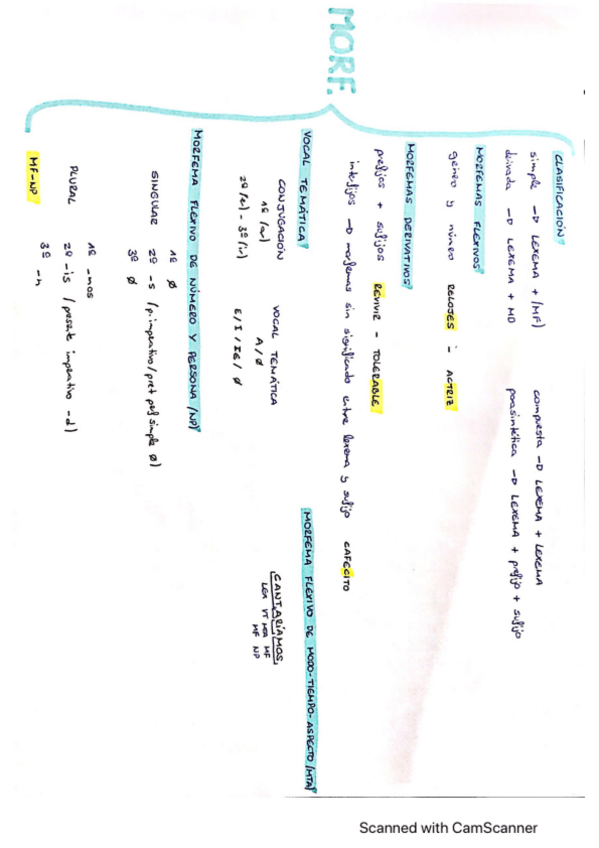 MORF.
CLASIFICACIÓN
simple → LEXEMA + (MF)
compuesta → LEXEMA + LEXEMA
derivada → LEXEMA + MD
parasintética → LEXEMA + prefijo + sufijo
MORFEMAS FLEXIVOS
género y número RELOJES - ACTRIZ
MORFEMAS DERIVATIVOS
prefijos + sufijos REVIVIR - TOLERABLE
interfijos → morfemas sin significado entre lexema y sufijo CAFECITO
VOCAL TEMÁTICA
CONJUGACIÓN VOCAL TEMÁTICA
1ª (ar) A/Ø
2ª (er) - 3ª (ir) E/I/IE/Ø
MORFEMA FLEXIVO DE MODO-TIEMPO-ASPECTO (MTA)
CANT.A.RÍA.MOS
LEX VT MTA MF
MF NP
MORFEMA FLEXIVO DE NÚMERO Y PERSONA (NP)
1ª Ø
SINGULAR 2ª -s (p. imperativo/pret perf simple Ø)
3ª Ø
1ª -mos
PLURAL 2ª -is (presente imperativo -d)
3ª -n
MF-NP
Scanned with CamScanner